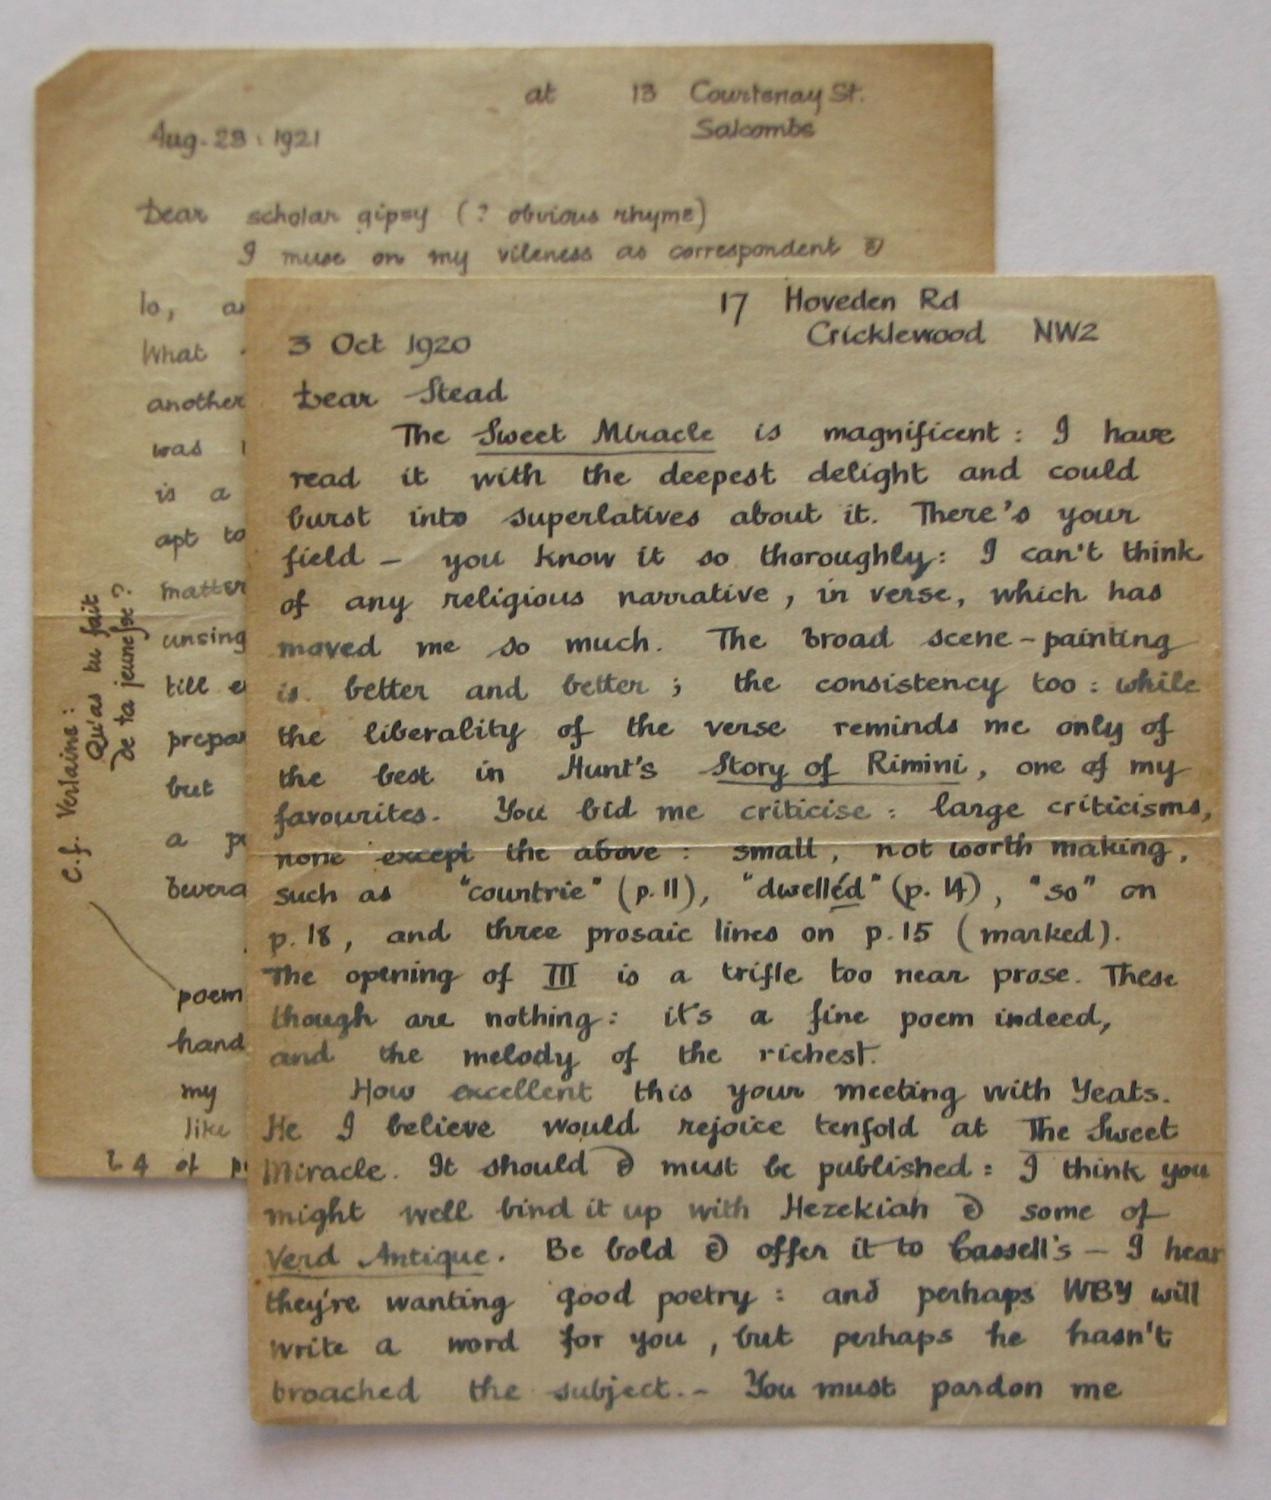 at 13 Courtenay St.
Salcombe
Aug. 23 : 1921
Dear scholar gipsy (? obvious rhyme)
I muse on my vileness as correspondent &
lo,
What
another
was
is a
apt to
matter
unsing
till
prepar
but
a
bevera
poem
hand
my
like
& 4 of
C.f. Verlaine :
Qu'as tu fait
De ta jeunesse ?
17 Hoveden Rd
Cricklewood NW2
3 Oct 1920
Dear Stead
The Sweet Miracle is magnificent : I have
read it with the deepest delight and could
burst into superlatives about it. There's your
field — you know it so thoroughly : I can't think
of any religious narrative, in verse, which has
moved me so much. The broad scene-painting
is better and better ; the consistency too : while
the liberality of the verse reminds me only of
the best in Hunt's Story of Rimini, one of my
favourites. You bid me criticise : large criticisms,
none except the above : small, not worth making,
such as "countrie" (p. 11), "dwelléd" (p. 14), "so" on
p. 18, and three prosaic lines on p. 15 (marked).
The opening of III is a trifle too near prose. These
though are nothing : it's a fine poem indeed,
and the melody of the richest.
How excellent this your meeting with Yeats.
He I believe would rejoice tenfold at The Sweet
Miracle. It should & must be published : I think you
might well bind it up with Hezekiah & some of
Verd Antique. Be bold & offer it to Cassell's — I hear
they're wanting good poetry : and perhaps WBY will
write a word for you, but perhaps he hasn't
broached the subject. – You must pardon me